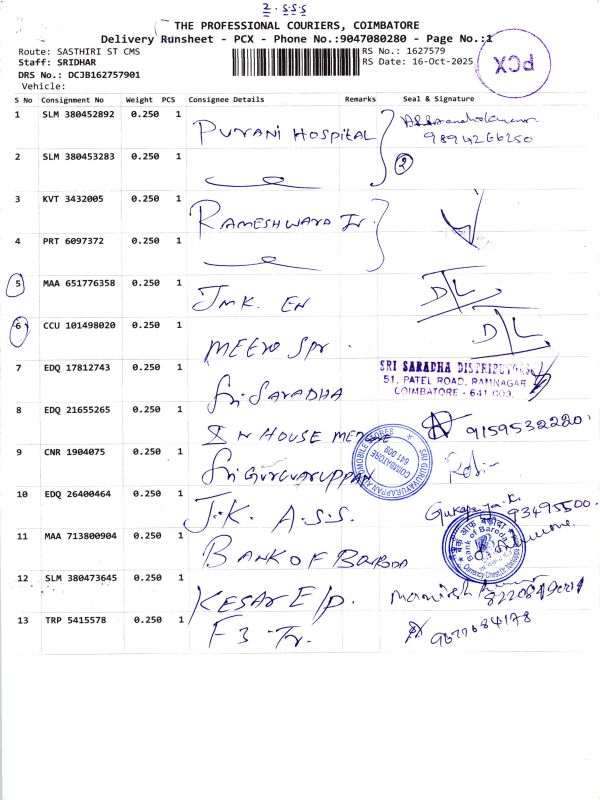 2.5.5.5
THE PROFESSIONAL COURIERS, COIMBATORE
Delivery Runsheet - PCX - Phone No.:9047080280 - Page No.:1
Route: SASTHIRI ST CMS RS No.: 1627579
Staff: SRIDHAR RS Date: 16-Oct-2025
DRS No.: DCJB162757901
Vehicle:
PCX
S No Consignment No Weight PCS Consignee Details Remarks Seal & Signature
1 SLM 380452892 0.250 1 PURANI HOSPITAL
9894266250
2 SLM 380453283 0.250 1 2
3 KVT 3432005 0.250 1 RAMESHWARA
4 PRT 6097372 0.250 1
5 MAA 651776358 0.250 1 JMK. EN D/L
6 CCU 101498020 0.250 1 METRO SPR D/L
7 EDQ 17812743 0.250 1 Sri SARADHA
SRI SARADHA DISTRIBUTORS
51, PATEL ROAD, RAMNAGAR
COIMBATORE - 641 009.
8 EDQ 21655265 0.250 1 IN HOUSE 9159532220
9 CNR 1904075 0.250 1 Sri GURUVARUPPAN
SRI GURUVAYURAPPAN AUTOMOBILE STORES
COIMBATORE
641 009
10 EDQ 26400464 0.250 1 J.K. A.S.S. 93495500
11 MAA 713800904 0.250 1 BANK OF BARODA
बैंक ऑफ़ बड़ौदा
Bank of Baroda
12 SLM 380473645 0.250 1 KESAR E/P.
13 TRP 5415578 0.250 1 F3 Tr. 9677684178